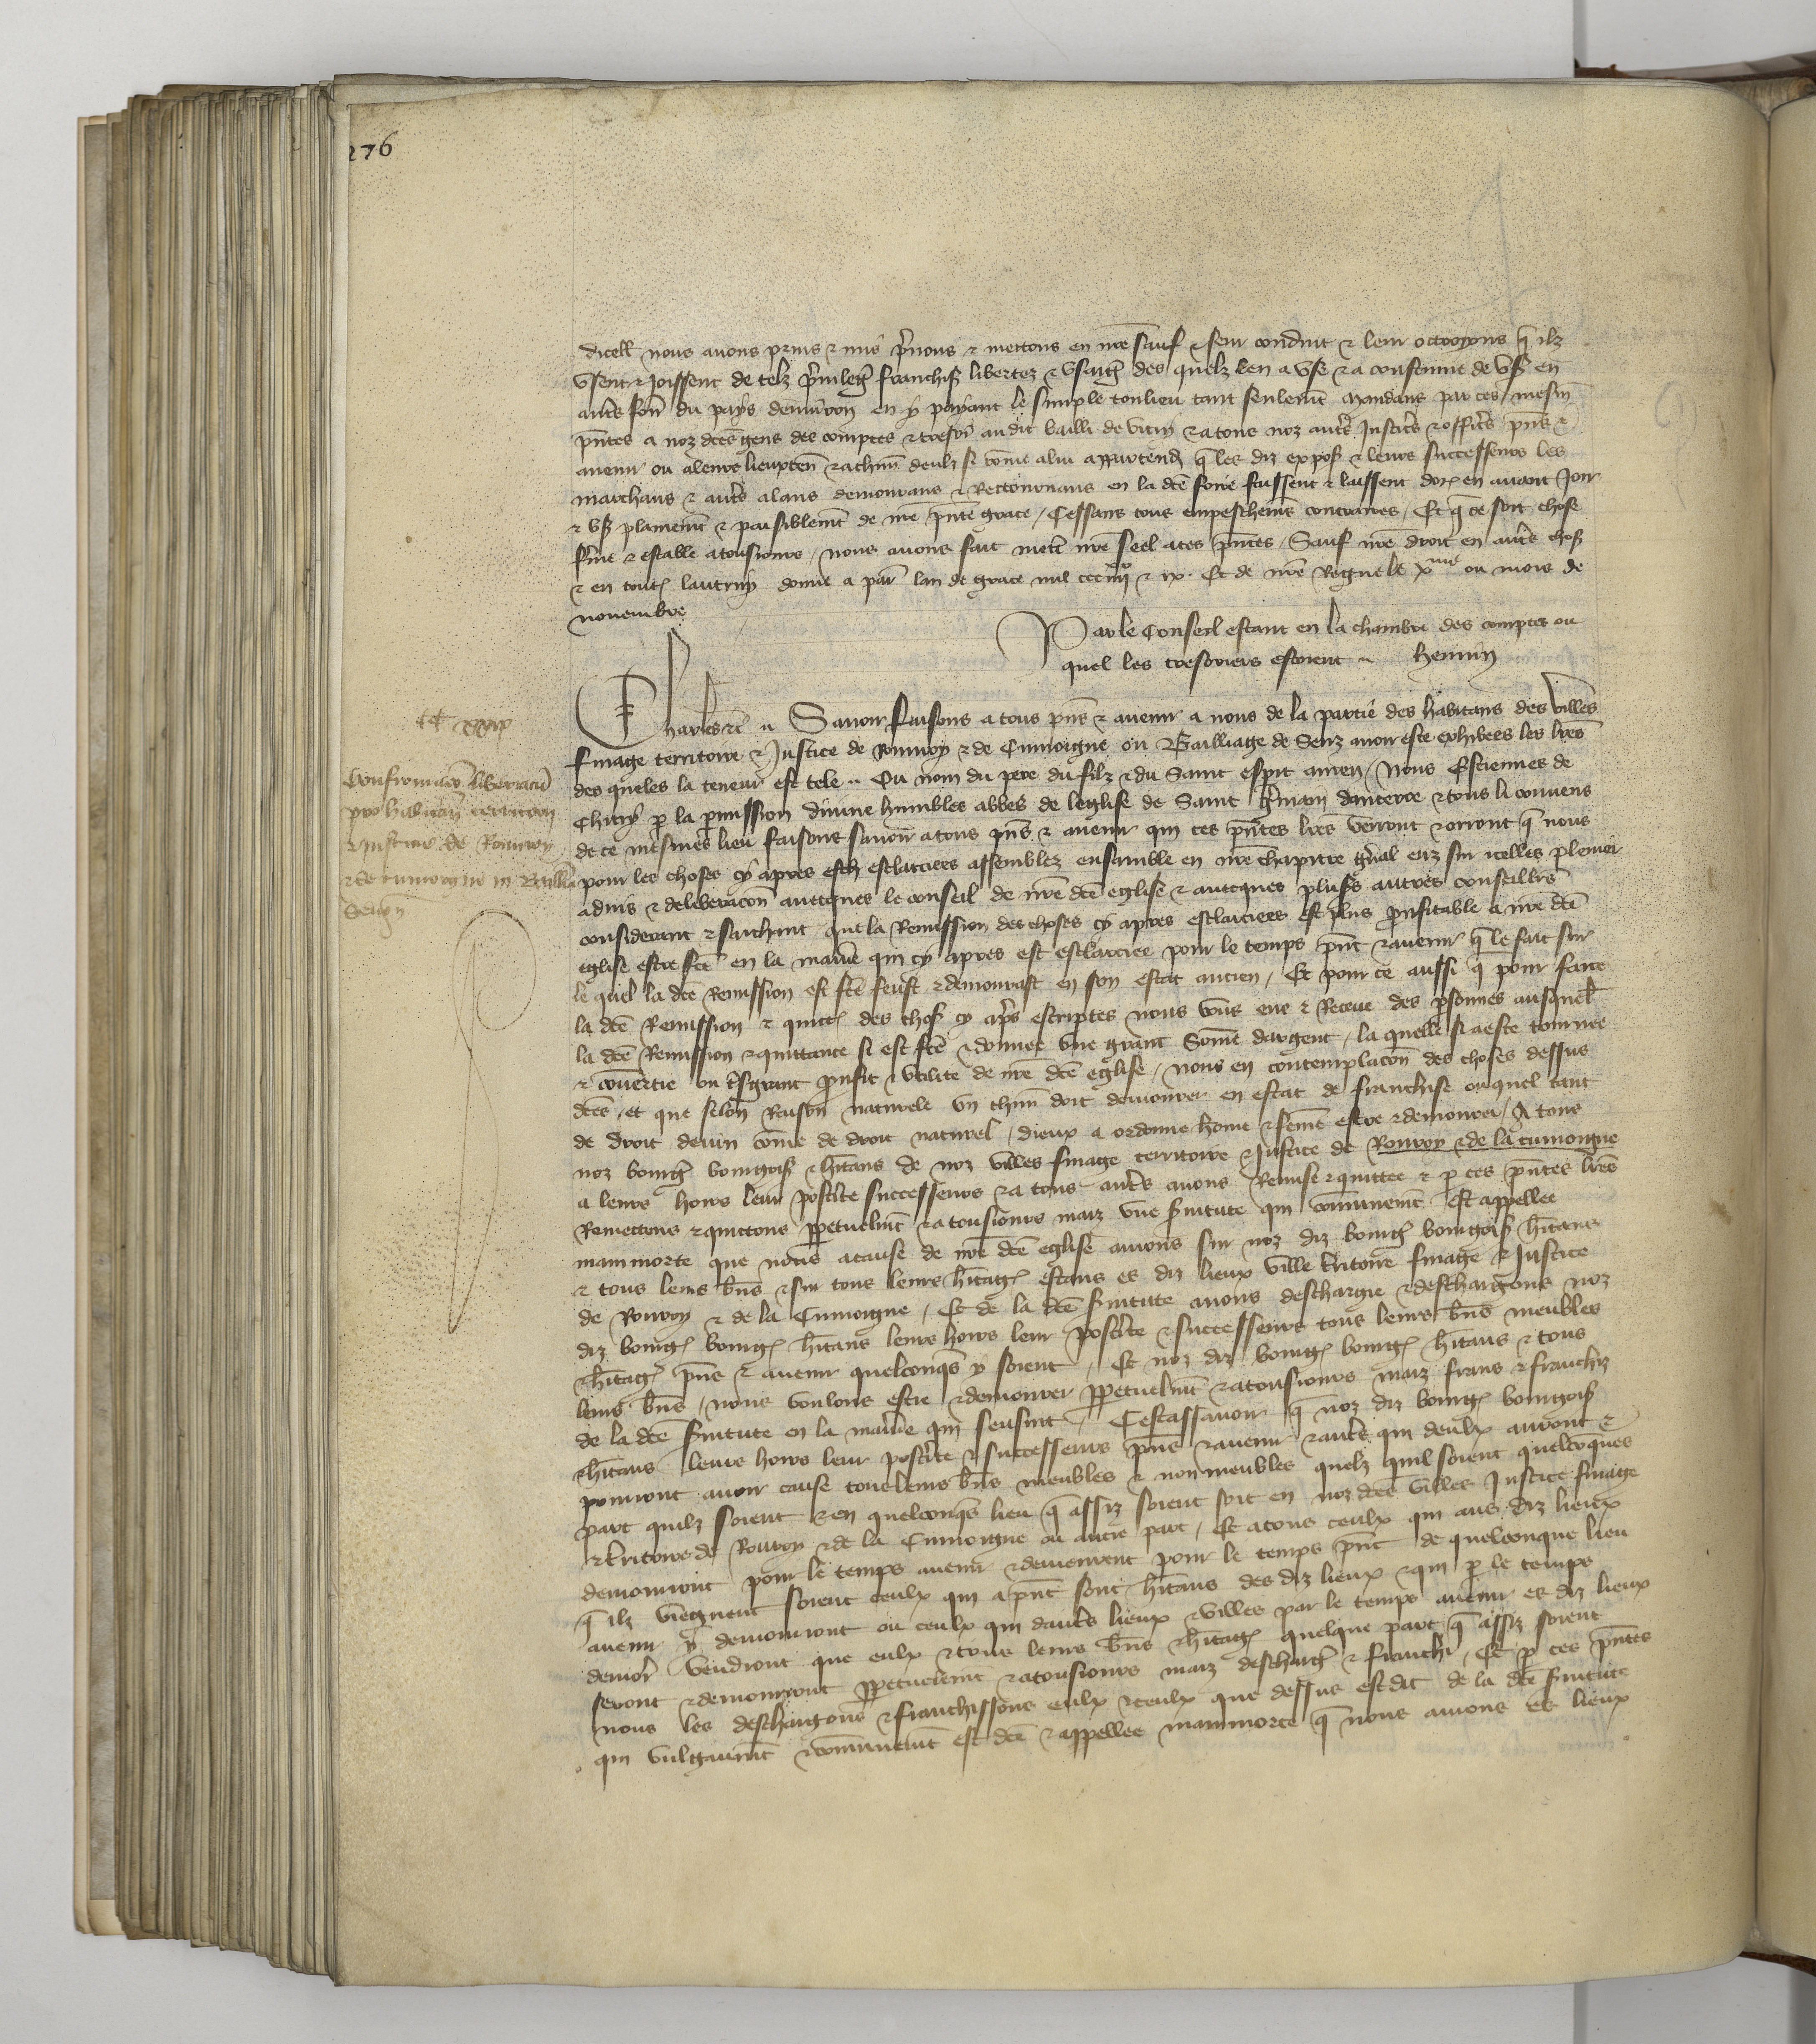 276
dicell nous avons prins & mis prenons & mettons en nre sauf & seur conduit & leur octroyons q ilz
usent & joissent de telz privileg franchis libertez & usaig des quelz len a use & a coustume de us en
autrs foir du pays denviron en y payant le simple tonlieu tant seulemt Mandans par ces mesm
pntes a noz dces gens des comptes & tresors au dit bailli de vitry & a tous noz autrs justices & offices pns &
avenir ou a leurs lieuxten & a chun deulx si come a lui appartendr q les diz expos & leurs successeurs les
marchans & autrs alans demourans & Retournans en la dce foire facent & laissent dores en avant Joir
& us plainemt & paisiblemt de nre pnte grace / Cessans tous empeschems contraires / Et q ce soit chose
ferme & estable a tousiours / nous avons fait mett nre seel a ces pntes / Sauf nre droit en autrs chos
& en toutes lautruy donne a par lan de grace mil ccc iiijxx & ix. Et de nre Regne le xme ou mois de
novembre
Par le Conseil estant en la chambre des comptes ou
quel les tresoriers estoient ~ hennin
Charles & c Savoir faisons a tous pns & avenir a nous de la partie des habitans des villes
finage territoire & Justice de Rouvroy & de Cumoigne ou Bailliage de Senz avoir este exhibees les lres
des queles la teneur est tele ~ Ou nom du pere du filz & du saint esprit amen / Nous Estiennes de
Chitry p la pmission divine humbles abbes de leglise de Saint Gmain daucerre & tous li convens
de ce mesmes lieu faisons savoir a tous pns & avenir qui ces pntes lres verront & orront q nous
pour les choses cy apres esclarciees assemblez ensamble en nre chapitre gnal euz sur icelles plenier
advis & deliberacon avecques le conseil de nre dce eglise & avecques plusrs autres conseilliers
considerant & sachant que la Remission des choses cy apres esclarciees est plus proufitable a nre dce
eglise estre fce en la maniere qui cy apres est esclarciee pour le temps pnt & avenir q le fait sur
le quel la dce Remission est fce feust & demourast en son estat ancien / Et pour ce aussi q pour faire
la dce Remission & quitt des chos cy aprs escriptes nous avons eue & Receue des psonnes ausquel
la dce Remission & quittance si est fce & donnee une grant some dargent / la quelle si a este tournee
& convertie ou tsgrant proufit & utilite de nre dce eglise / nous en contemplacon des choses dessus
dces / et que selon Raison naturele un chun doit demourer en estat de franchise ou quel tant
de droit devin come de droit naturel / dieux a ordonne home & feme estre & demourer / A tous
noz bourg bourgois & hitans de noz villes finage territoire & Justice de Rouvroy & de la cumoigne
a leurs hoirs leur posterite successeurs & a tous autrs avons Remise & quittee & p ces pntes lres
Remettons & quittons ppetuelmt & a tousiours maiz une svitute qui comunemt est appellee
mainmorte que nous a cause de nre dce eglise avions sur noz diz bourg bourgois hitans
& tous leurs bns & sur tous leurs hitag estans es diz lieux ville tritoire finage & Justice
de Rouvroy & de la Cumoigne / Et de la dce svitute avons deschargie & deschargons noz
diz bourg bourg hitans leurs hoirs leur posterite & successeurs tous leurs bns meubles
& hitag pns & avenir quelconqs y soient / Et noz diz bourg bourg hitans & tous
leurs bns / nous voulons estre & demourer ppetuelmt & a tousiours maiz frans & franchiz
de la dce svitute en la maniere qui sensuit / Cest assavoir q noz diz bourg bourgois
& hitans leurs hoirs leur posterite & successeurs pns & avenir & autrs qui deulx auront &
pourront avoir cause tous leurs bns meubles & non meubles quelz quil soient quelconques
part quilz soient & en quelconqs lieu q assiz soient soit en noz dces villes Justice finage
& tritoire de Rouvroy & de la Cumoigne ou autre part / Et a tous ceulx qui aus diz lieux
demourront pour le temps avenir & demeurent pour le temps pnt de quelconque lieu
q ilz viengnent soient ceulx qui a pnt sont hitans des diz lieux & qui p le temps
avenir y demourront ou ceulx qui dautrs lieux & villes par le temps avenir es diz lieux
demorr vendront que eulx & tous leurs bns & hitag quelque part q assiz soient
seront & demourront ppetuelmt & a tousiours maiz deschargi & franchi / Et p ces pntes
nous les deschargons & franchissons eulx & ceulx que dessus est dit de la dce svitute
qui vulgaumt & comunemt est dce & appellee mainmorte q nous avions es lieux
Confirmacio libertatu
pro habitan territorii
& justicie de Rouvroy
& de cumoigne in Baillia
Senon